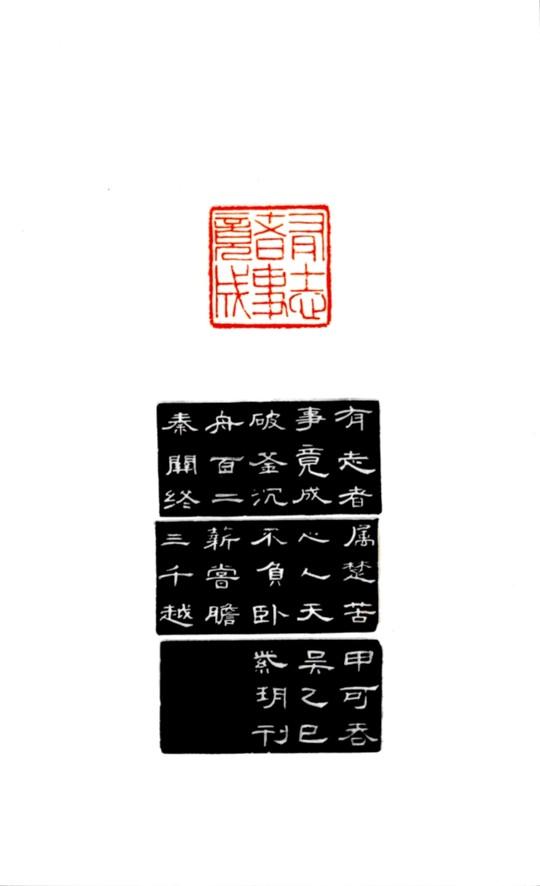 有志
者事
竟成
有志者
事竟成
破釜沉
舟百二
秦關终
属楚苦
心人天
不負卧
薪嘗膽
三千越
甲可吞
吴乙巳
紫玥刊